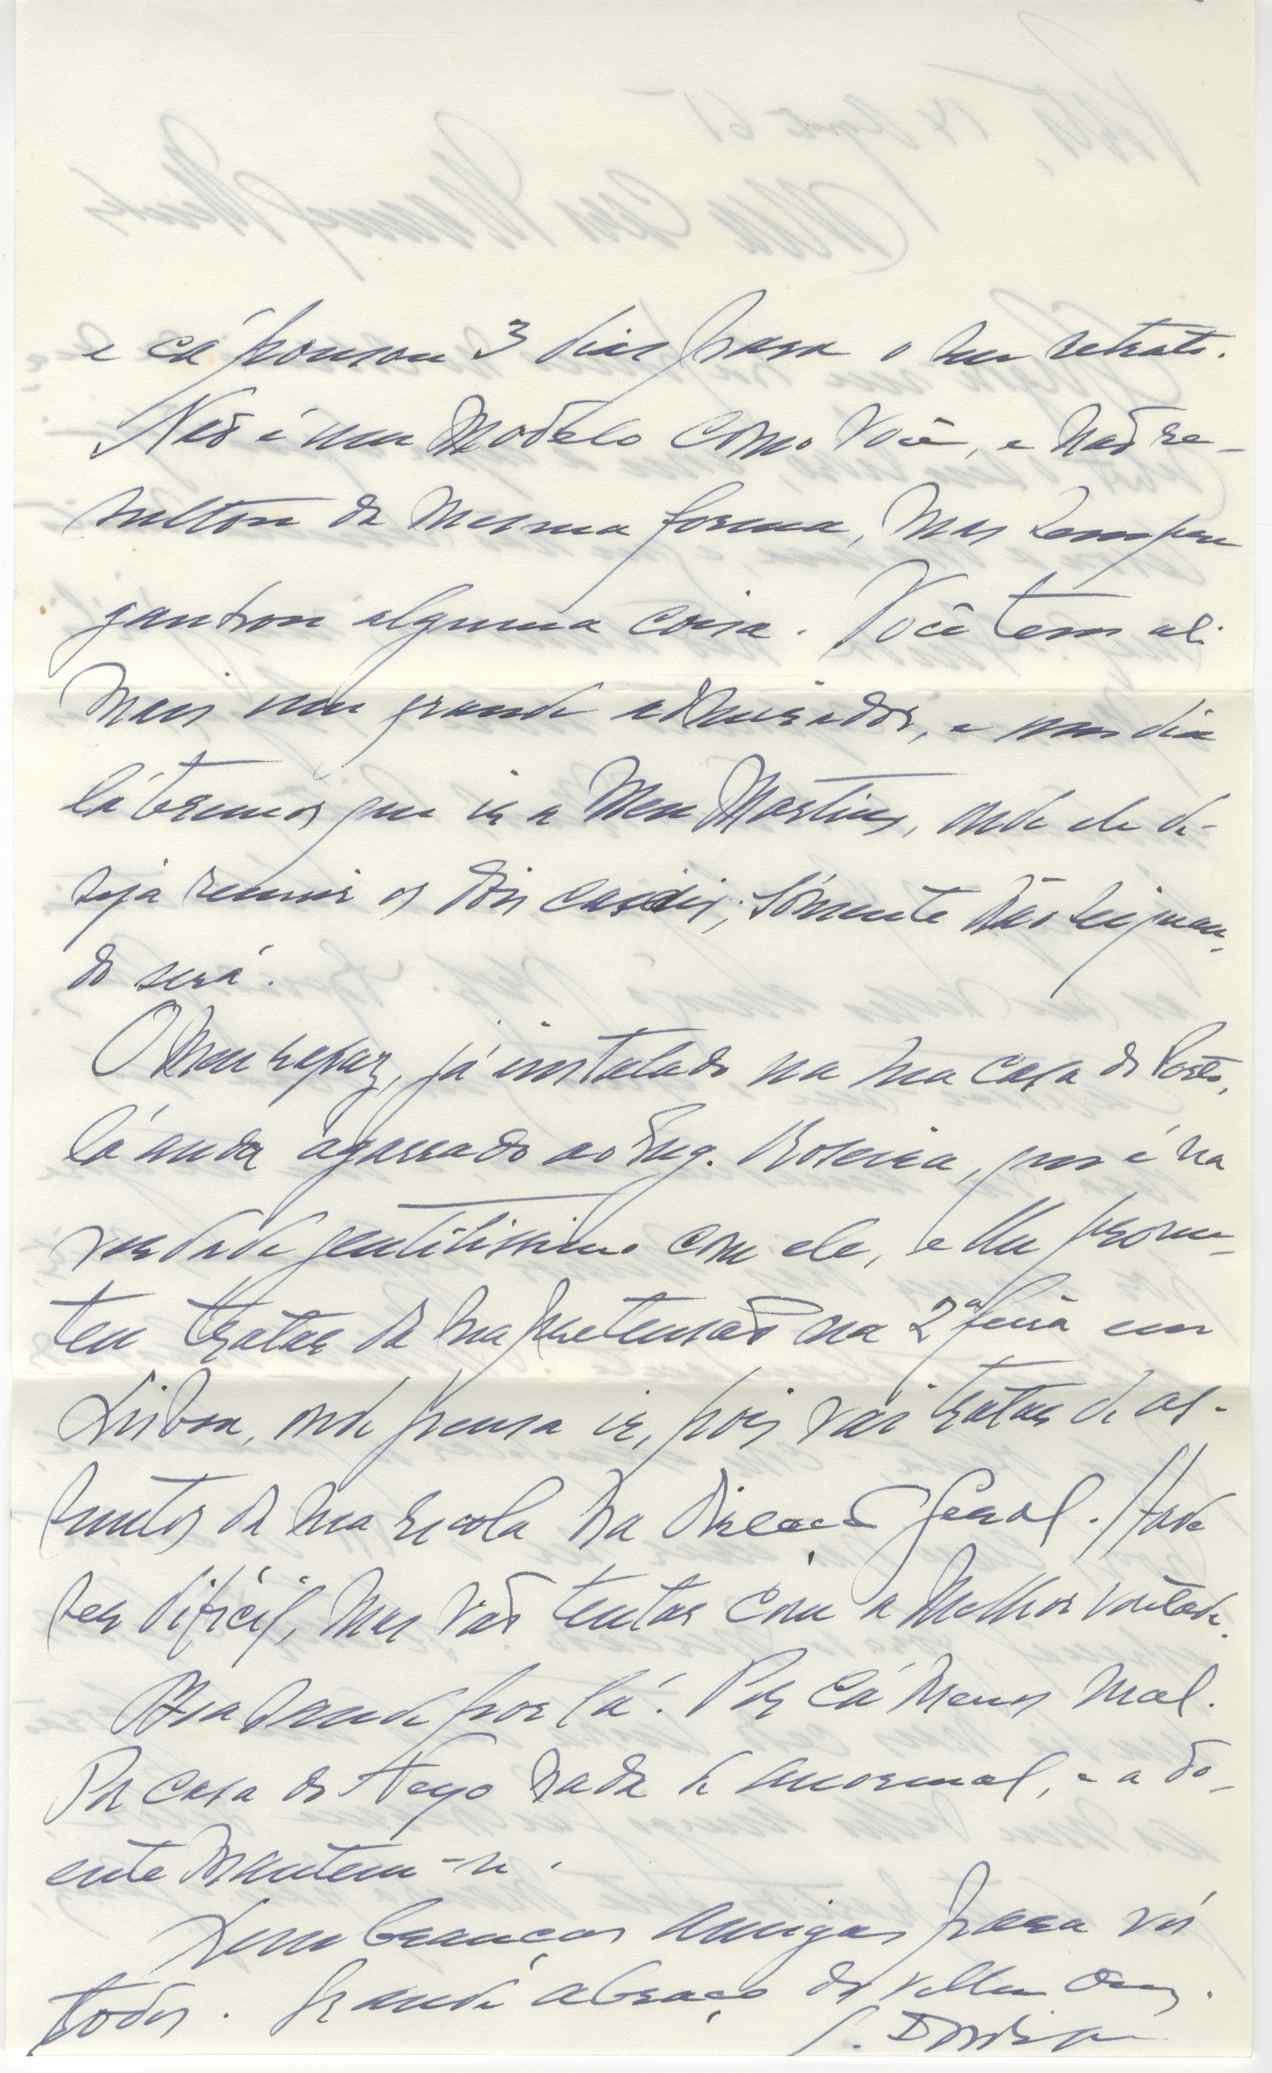 e cá pousou 3 dias para o seu retrato.
Não é um modelo como Você, e não re-
sultou da mesma forma, mas sempre
ganhou alguma coisa. Você tem ali
mais um grande admirador, e um dia
lá teremos que ir a Mem Martins, onde ele de-
seja reunir os dois casais; sómente não sei quan-
do será.
O meu rapaz, já instalado na sua casa do Porto,
lá anda agarrado ao Eng. Roseira, que é na
verdade gentilissimo com ele, e lhe prome-
teu tratar da sua pretensão na 2ª feira em
Lisboa, onde pensa ir, pois vai tratar de as-
suntos da sua escola na Direcção Geral. Há de
ser difícil, mas vão tentar com a melhor vontade.
Boa saude por lá. Por cá menos mal.
Por casa do nada de anormal, e a do-
ente mantem-se.
Lembranças amigas para vós
todos. Grande abraço do velho am.